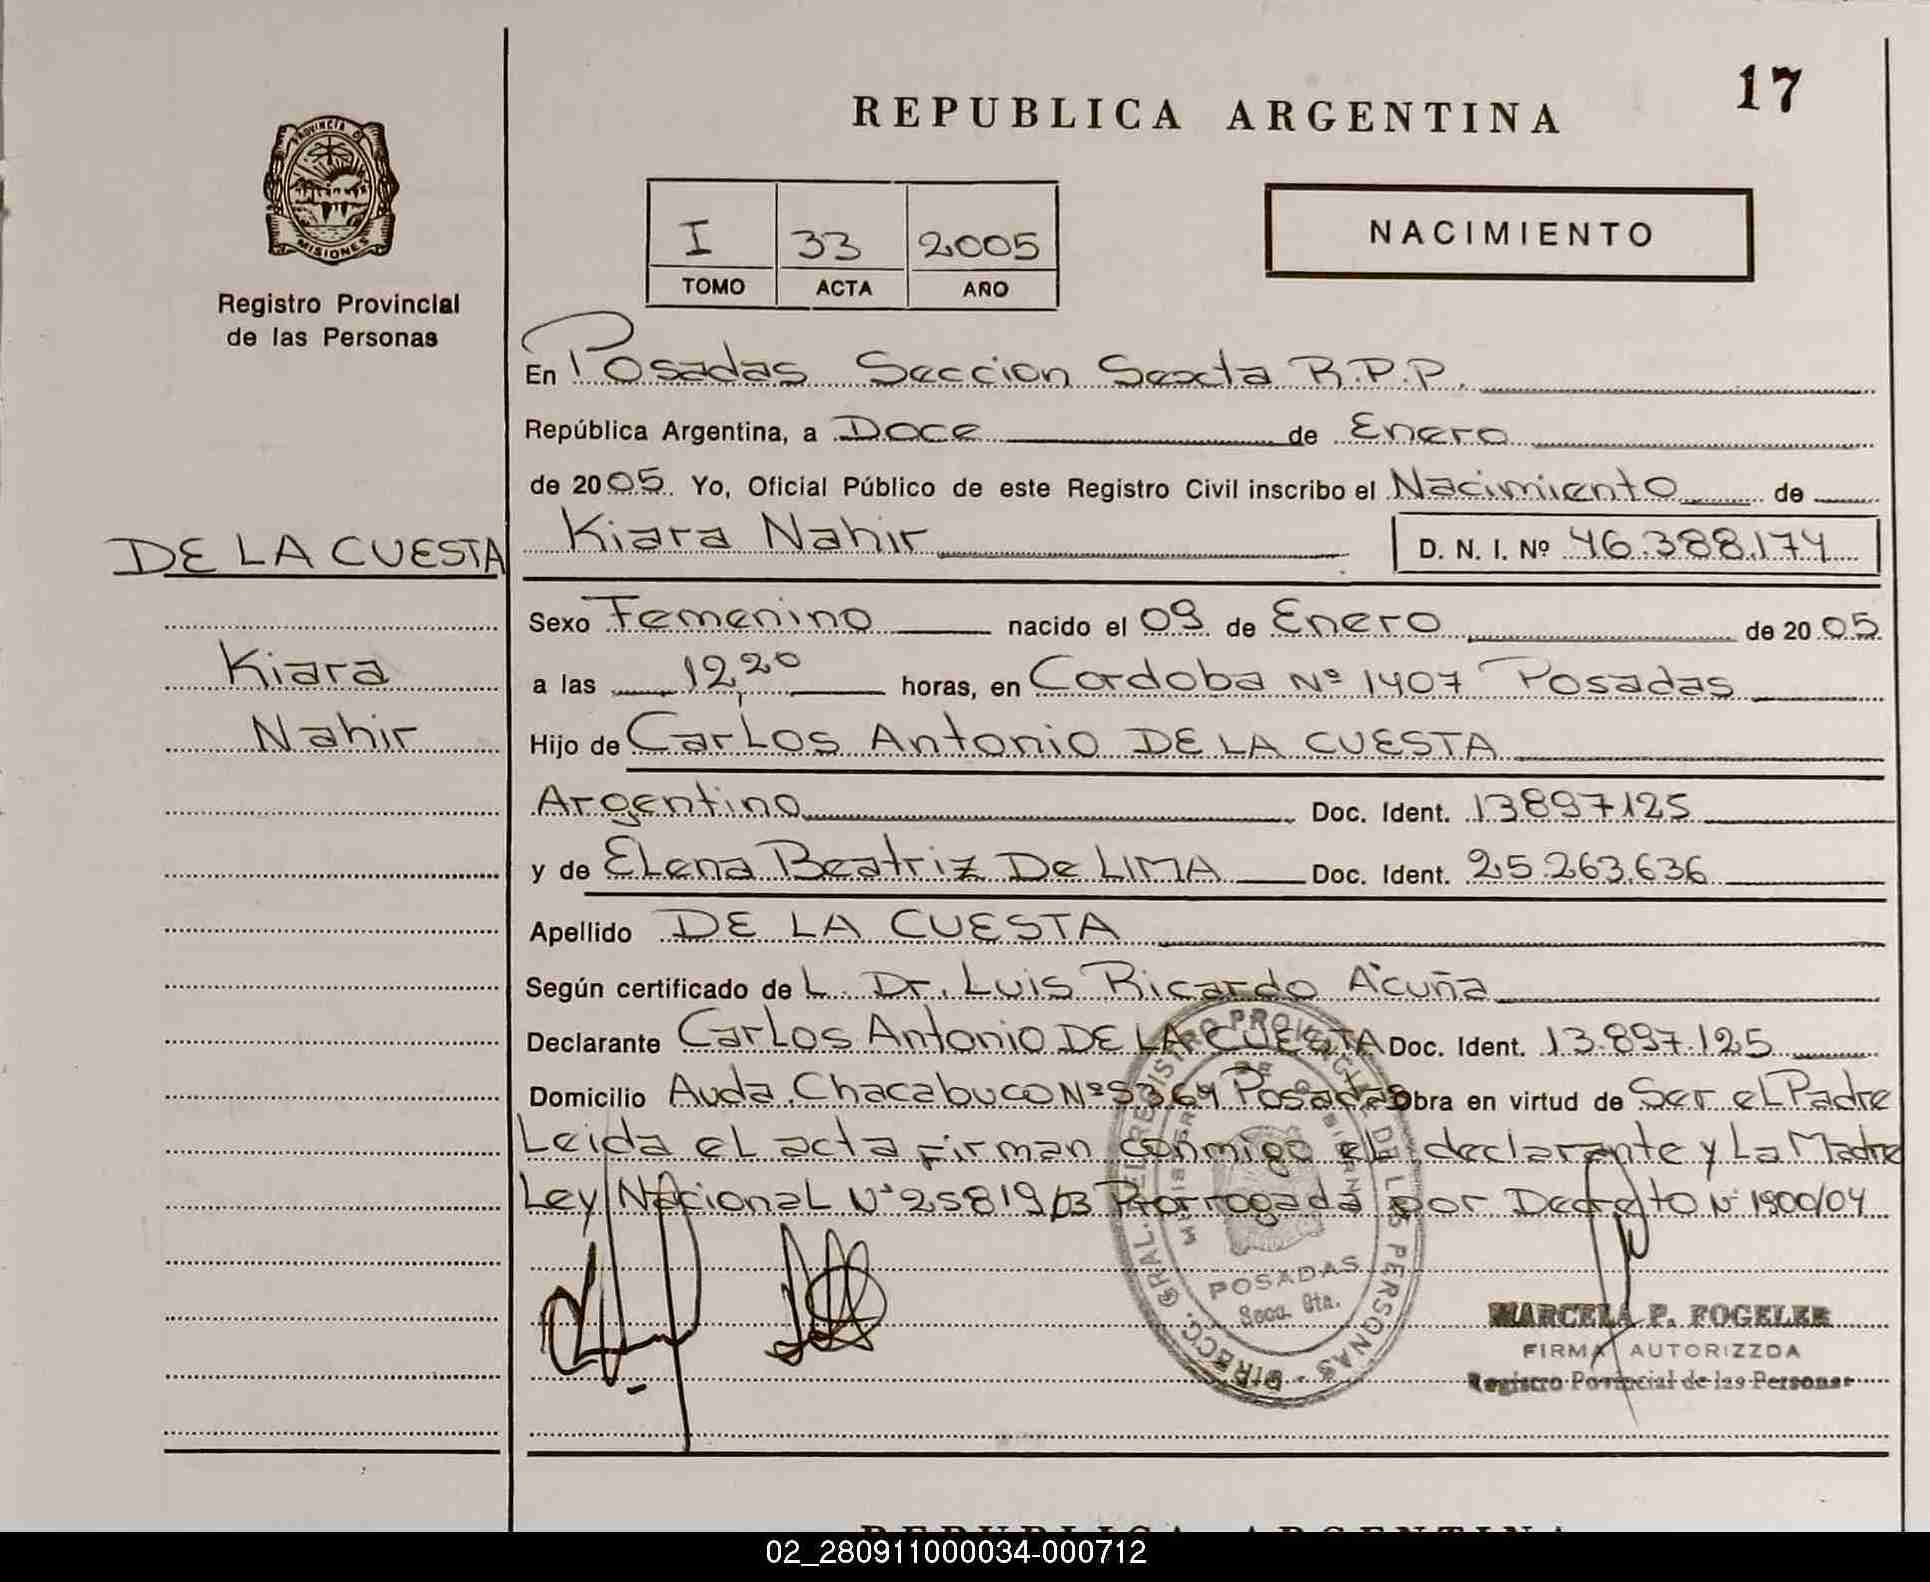 17
REPUBLICA ARGENTINA
PROVINCIA DE
MISIONES
Registro Provincial
de las Personas
I 33 2005
TOMO ACTA AÑO
NACIMIENTO
En Posadas Seccion Sexta R.P.P.
República Argentina, a Doce de Enero
de 2005. Yo, Oficial Público de este Registro Civil inscribo el Nacimiento de
DE LA CUESTA
Kiara
Nahir
Kiara Nahir D. N. I. Nº 46.388.174
Sexo Femenino nacido el 09 de Enero de 2005
a las 12,20 horas, en Cordoba Nº 1407 Posadas
Hijo de Carlos Antonio DE LA CUESTA
Argentino Doc. Ident. 13897125
y de Elena Beatriz De LIMA Doc. Ident. 25.263.636
Apellido DE LA CUESTA
Según certificado de L. Dr. Luis Ricardo Acuña
Declarante Carlos Antonio DE LA CUESTA Doc. Ident. 13.897.125
Domicilio Avda. Chacabuco Nº 5369 Posadas Obra en virtud de Ser el Padre
Leida el acta firman conmigo el declarante y La Madre
Ley Nacional Nº 25819/03 Prorrogada por Decreto Nº 1900/04
DIRECC. GRAL. DEL REGISTRO PROVINCIAL DE LAS PERSONAS
POSADAS
Secc. 6ta.
MARCELA P. FOGELER
FIRMA AUTORIZZDA
Registro Povincial de las Personas
REPUBLICA ARGENTINA
02_280911000034-000712